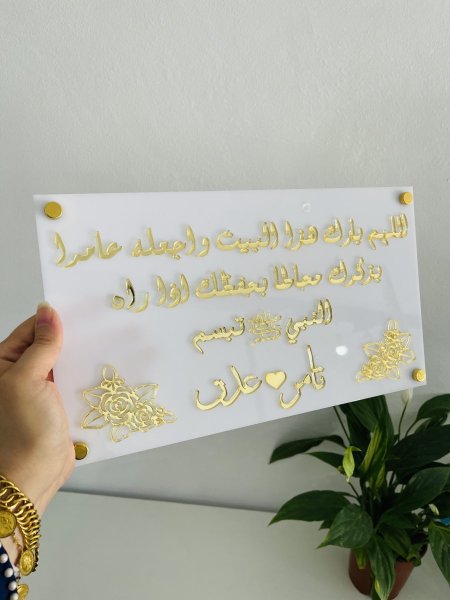 اللهم بارك هذا البيت واجعله عامرا
بذكرك محاطا بحفظك اذا راه
النبي ﷺ تبسم
تامر عارف